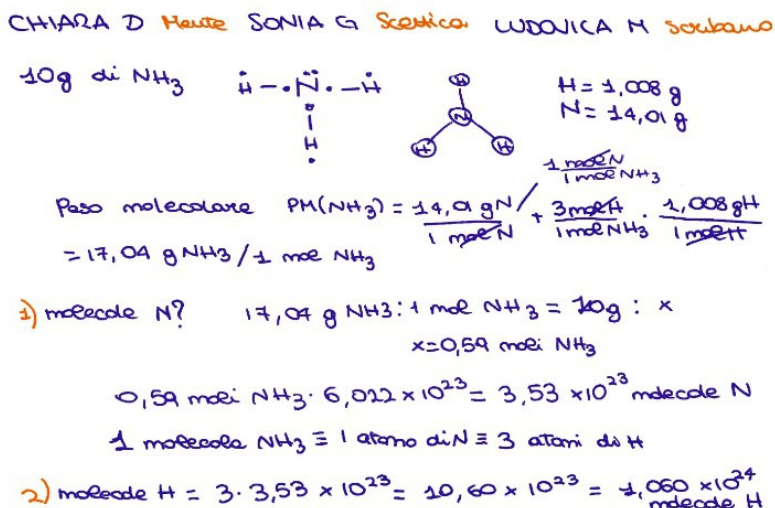 CHIARA D Mente SONIA G Scettica LUDOVICA M scribano
10g di NH3
H - N - H
H
H
N
H
H
H = 1,008 g
N = 14,01 g
Peso molecolare PM(NH3) = 14,01 gN / 1 mol N · 1 mol N / 1 mol NH3 + 3 mol H / 1 mol NH3 · 1,008 gH / 1 mol H
= 17,04 g NH3 / 1 mol NH3
1) molecole N? 17,04 g NH3 : 1 mol NH3 = 10g : x
x = 0,59 moli NH3
0,59 moli NH3 · 6,022 x 10^23 = 3,53 x 10^23 molecole N
1 molecola NH3 ≡ 1 atomo di N ≡ 3 atomi di H
2) molecole H = 3 · 3,53 x 10^23 = 10,60 x 10^23 = 1,060 x 10^24 molecole H